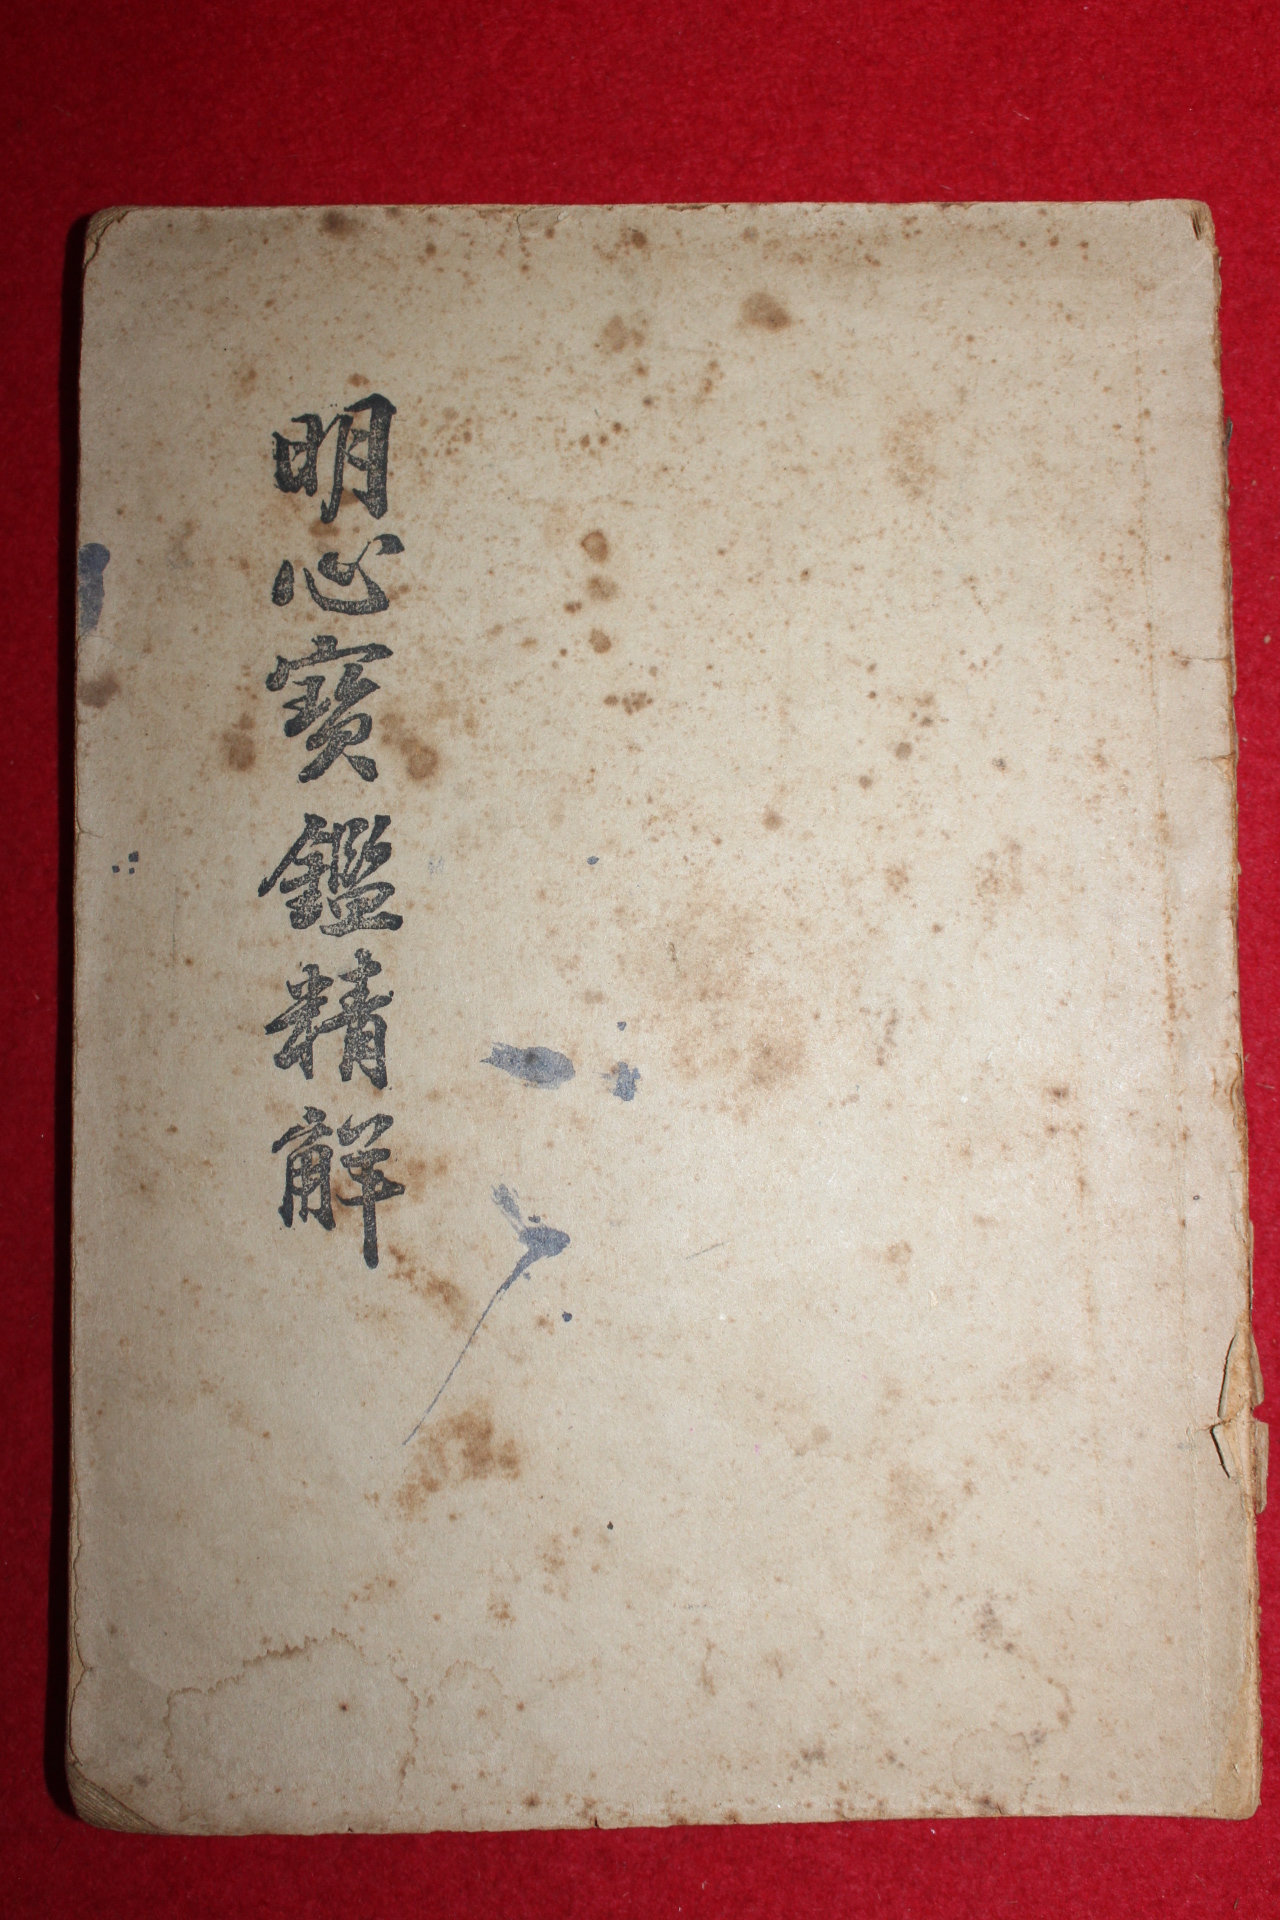 明心寶鑑精觧